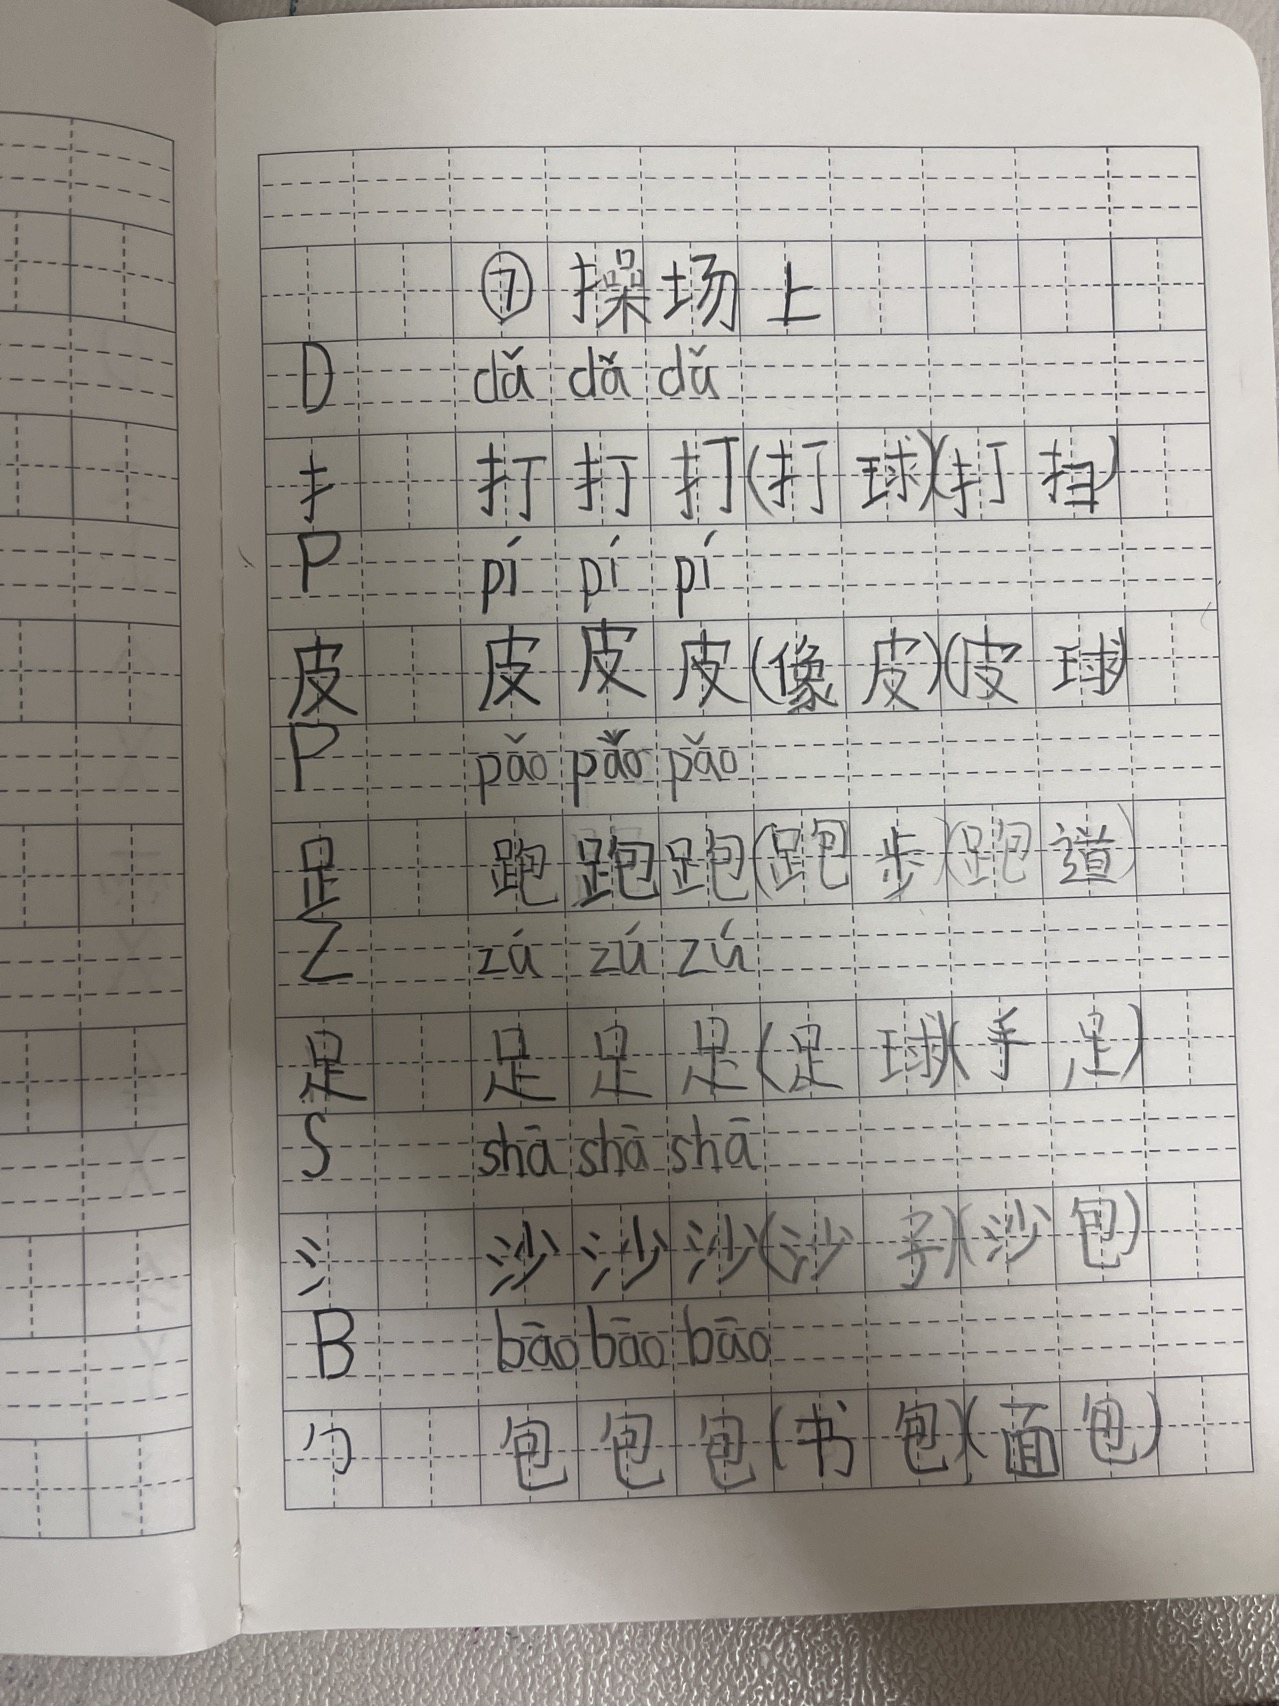 ⑦ 操场上
D dǎ dǎ dǎ
扌 打 打 打(打球)(打扫)
P pí pí pí
皮 皮 皮 皮(像皮)(皮球)
P pǎo pǎo pǎo
足 跑 跑 跑(跑步)(跑道)
Z zú zú zú
足 足 足 足(足球)(手足)
S shā shā shā
氵 沙 沙 沙(沙子)(沙包)
B bāo bāo bāo
勹 包 包 包(书包)(面包)